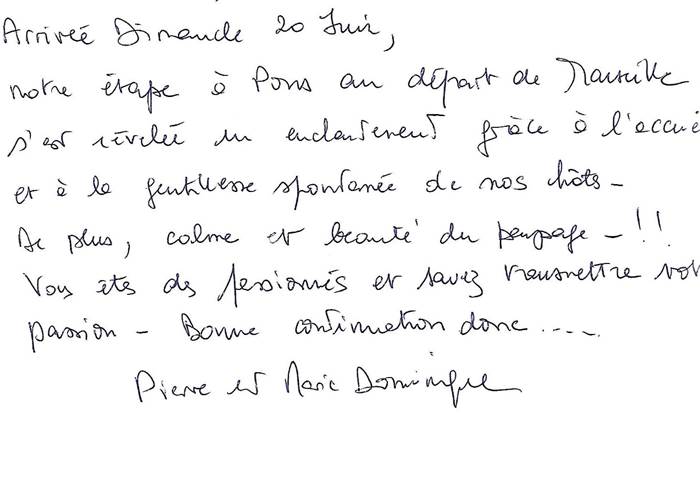 Arrivée Dimanche 20 Juin,
notre étape à Pons au départ de Marseille
s'est révélée un enchantement grâce à l'accue
et à la gentillesse spontanée de nos hôtes -
De plus, calme et beauté du paysage - !!
Vous êtes des passionnés et savez transmettre vot
passion - Bonne continuation donc .....
Pierre et Marie Dominique